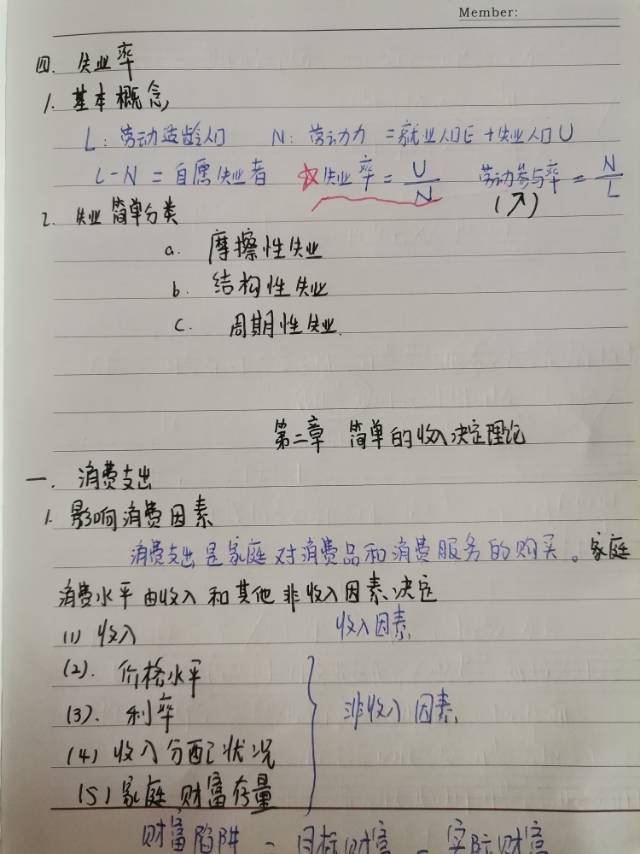 Member:
四. 失业率
1. 基本概念
L: 劳动适龄人口 N: 劳动力 =就业人口E+失业人口U
L-N = 自愿失业者 ☆失业率 = U/N 劳动参与率 = N/L
(入)
2. 失业简单分类
a. 摩擦性失业
b. 结构性失业
c. 周期性失业.
第二章 简单的收入决定理论
一. 消费支出
1. 影响消费因素
消费支出是家庭对消费品和消费服务的购买。家庭
消费水平由收入和其他非收入因素决定
(1) 收入 收入因素
(2). 价格水平
(3). 利率 非收入因素
(4) 收入分配状况
(5) 家庭财富存量
财富陷阱 = 目标财富 - 实际财富